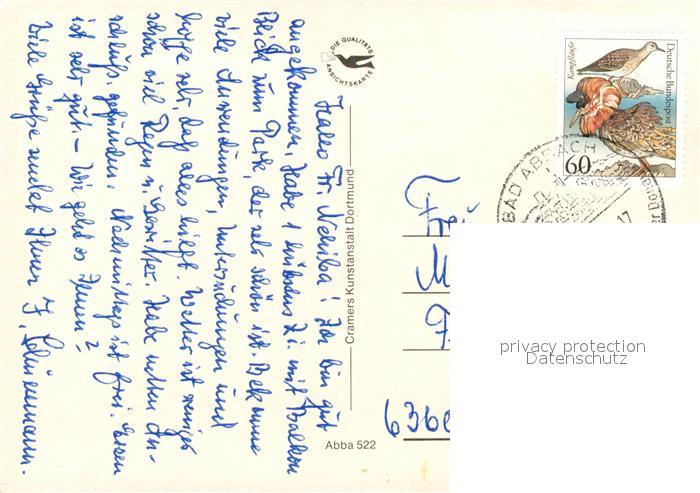 Hallo Fr. Nehiba! Ich bin gut
angekommen. Habe 1 hübsches Zi. mit Balkon
Blick zum Park, der sehr schön ist. Bekomme
viele Anwendungen, Untersuchungen und
hoffe sehr, daß alles hilft. Wetter ist weniger
schön viel Regen u. Gewitter. Habe netten An-
schluß gefunden. Nachmittags ist frei. Essen
ist sehr gut. – Wie geht es Ihnen?
Viele Grüße sendet Ihnen
DIE QUALITÄTS
ANSICHTSKARTE
Cramers Kunstanstalt Dortmund
Abba 522
Kampfläufer
Deutsche Bundespost
60
BAD ABBACH
17
Fr
M
F
636
privacy protection
Datenschutz